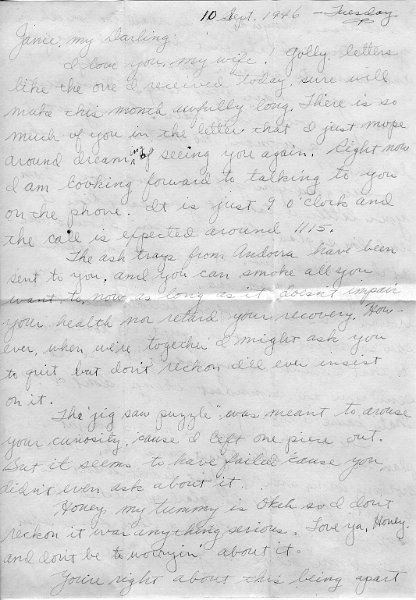 10 Sept. 1946 - Tuesday
Janie, my Darling:
I love you, my wife! Golly letters
like the one I received today, sure will
make this month awfully long. There is so
much of you in the letter that I just mope
around dreaming of seeing you again. Right now
I am looking forward to talking to you
on the phone. It is just 9 o'clock and
the call is expected around 1115.
The ash trays from Andorra have been
sent to you, and you can smoke all you
want to, now, as long as it doesn't impair
your health nor retard your recovery. How-
ever, when we're together I might ask you
to quit but don't reckon I'll ever insist
on it.
The "jig saw puzzle" was meant to arouse
your curiosity, 'cause I left one piece out.
But it seems to have failed 'cause you
didn't even ask about it.
Honey, my tummy is Okeh so I don't
reckon it was anything serious. Love ya, Honey
and don't be worryin' about it.
You're right about this being apart